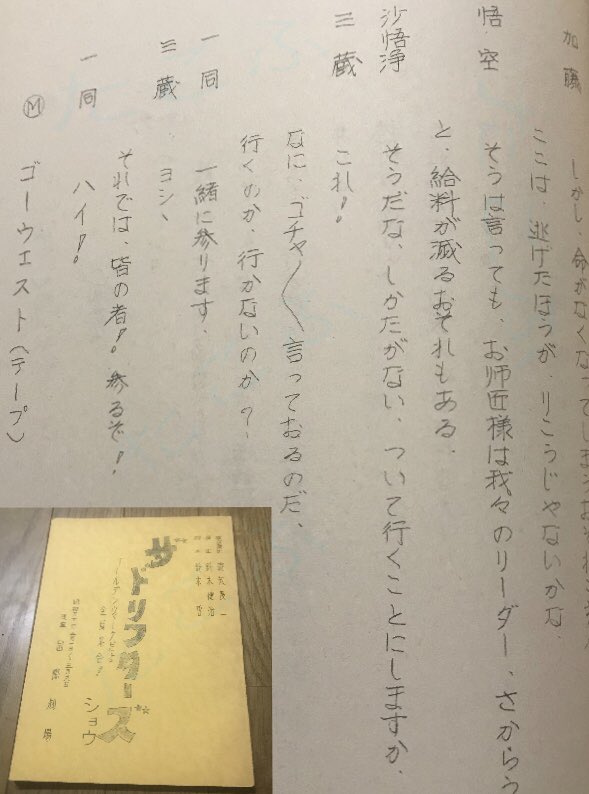 加藤　しかし、命がなくなってしまうおそれ
ここは、逃げたほうが、りこうじゃないかな、
悟空　そうは言っても、お師匠様は我々のリーダー、さからう
と、給料が減るおそれもある、
沙悟浄　そうだな、しかたがない、ついて行くことにしますか、
三蔵　これ！
なに、ゴチャ〳〵言っておるのだ、
行くのか、行かないのか？
一同　一緒に参ります、
三蔵　ヨシ、
それでは、皆の者！参るぞ！
一同　ハイ！
Ⓜ　ゴーウエスト（テープ）
ザ・ドリフターズ
ショウ
劇場